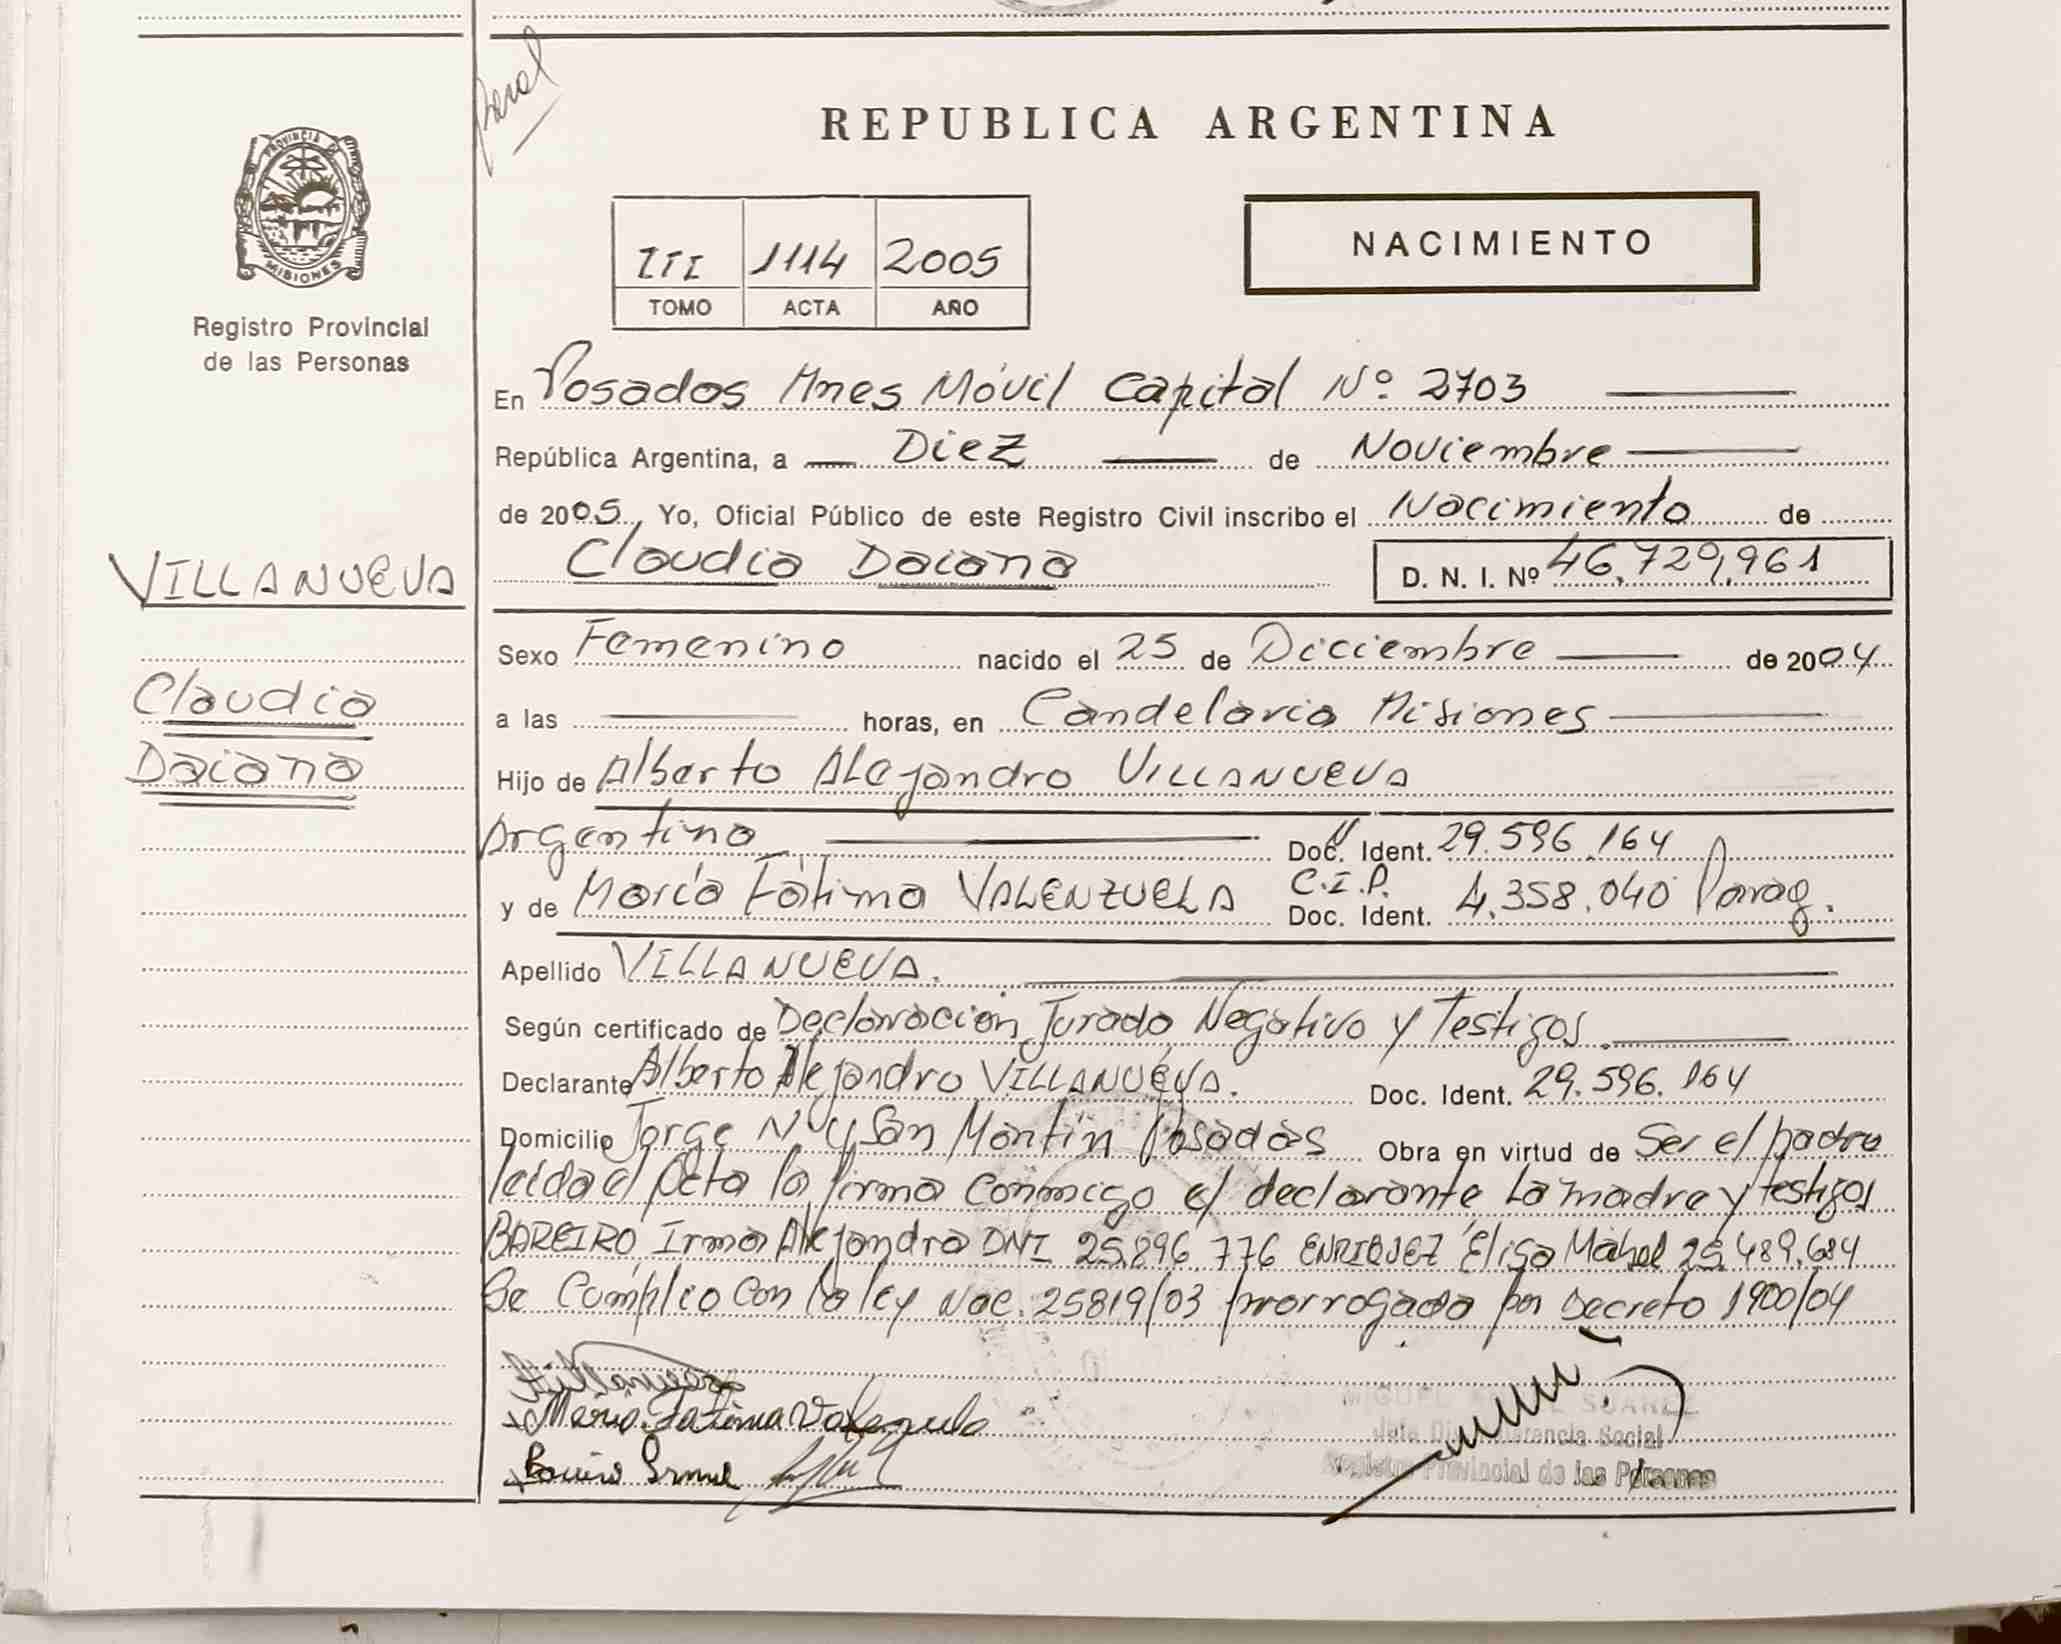 REPUBLICA ARGENTINA
PROVINCIA DE
MISIONES
Registro Provincial
de las Personas
III 1114 2005
TOMO ACTA AÑO
NACIMIENTO
En Posadas Mnes Móvil Capital Nº 2703
República Argentina, a Diez de Noviembre
de 2005, Yo, Oficial Público de este Registro Civil inscribo el Nacimiento de
Claudia Daiana D. N. I. Nº 46.729.961
VILLANUEVA
Claudia
Daiana
Sexo Femenino nacido el 25 de Diciembre de 2004
a las horas, en Candelaria Misiones
Hijo de Alberto Alejandro VILLANUEVA
Argentino Doc. Ident. 29.596.164
y de María Fátima VALENZUELA C.I.P. Doc. Ident. 4.358.040 Parag.
Apellido VILLANUEVA.
Según certificado de Declaración Jurada Negativo y Testigos.
Declarante Alberto Alejandro VILLANUEVA. Doc. Ident. 29.596.164
Domicilio Jorge N y San Martín Posadas Obra en virtud de Ser el padre
leida el Acta la firma conmigo el declarante la madre y testigos
BAREIRO Irma Alejandra DNI 25.896.776 ENRIQUEZ Elisa Mabel 25.489.684
Se Cumplio Con la ley Nac. 25819/03 prorrogada por Decreto 1900/04
Villanueva
Maria Fatima Valenzuela
Bareiro Irma
MIGUEL SUAREZ
Social
Registro Provincial de las Personas